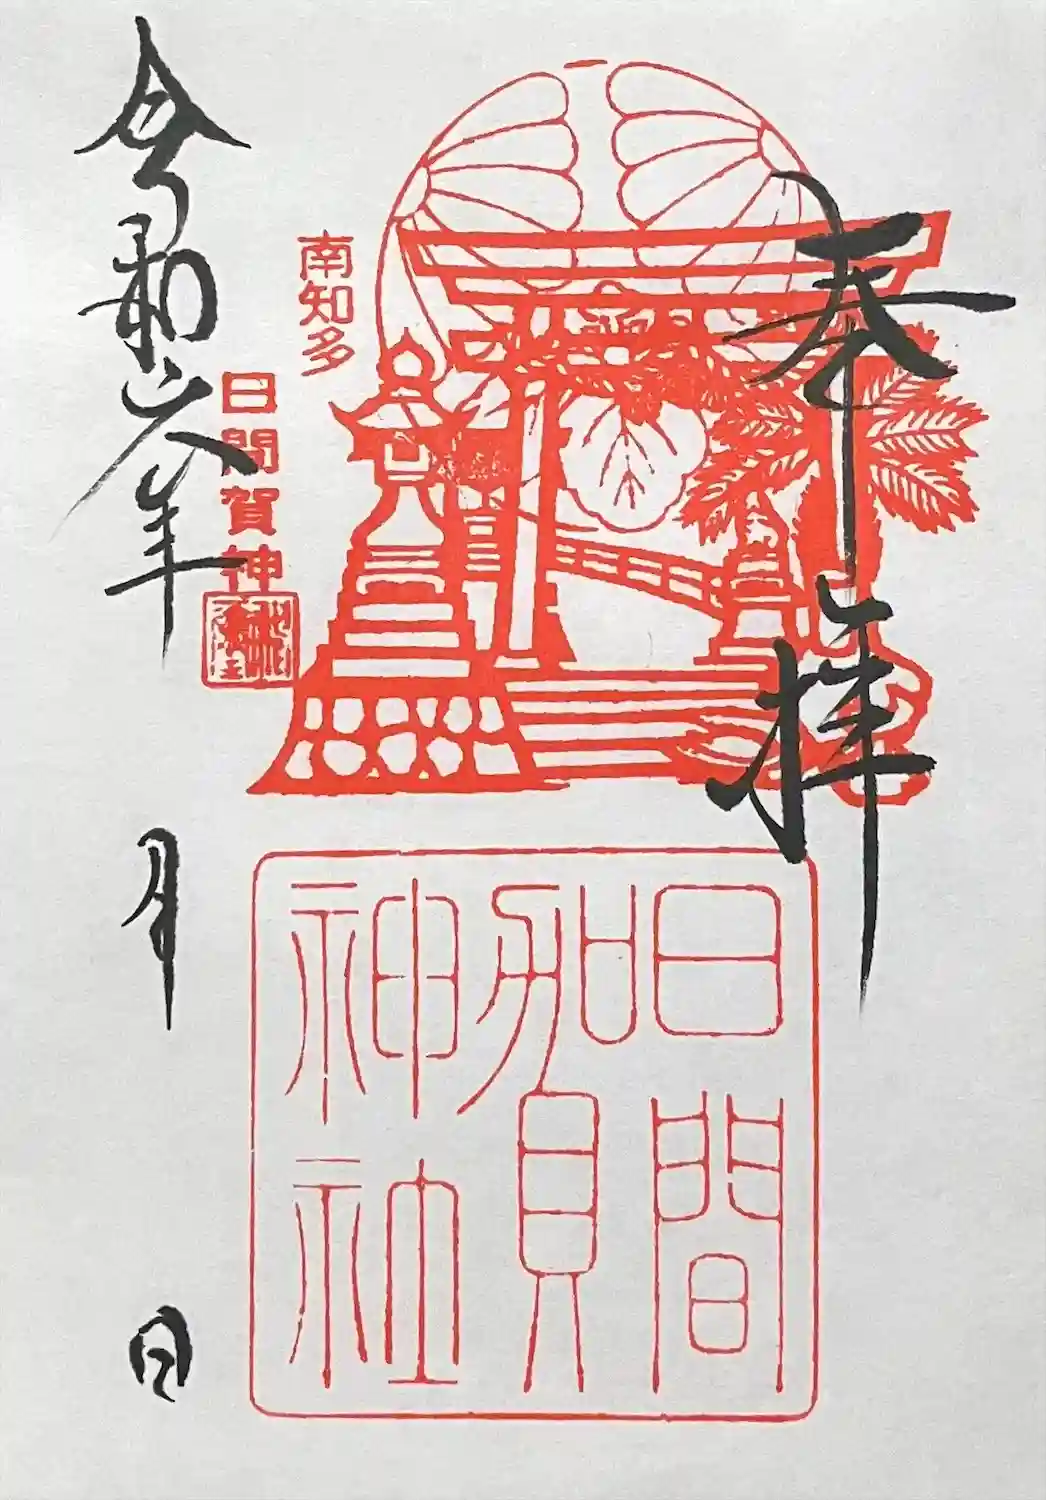 奉拝
南知多
日間賀神社
日間賀神社
令和六年 月 日